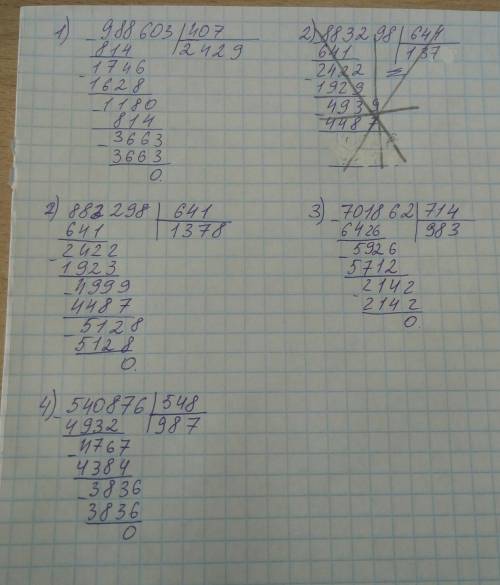 1) 988603 | 407
814 | 2429
- 1746
1628
- 1180
814
- 3663
3663
0.
2) 883298 | 641
641 | 137
- 2422
1929
- 4939
4487
2) 883298 | 641
641 | 1378
- 2422
1923
- 4999
4487
- 5128
5128
0.
3) - 701862 | 714
6426 | 983
- 5926
5712
- 2142
2142
0.
4) - 540876 | 548
4932 | 987
- 4767
4384
- 3836
3836
0